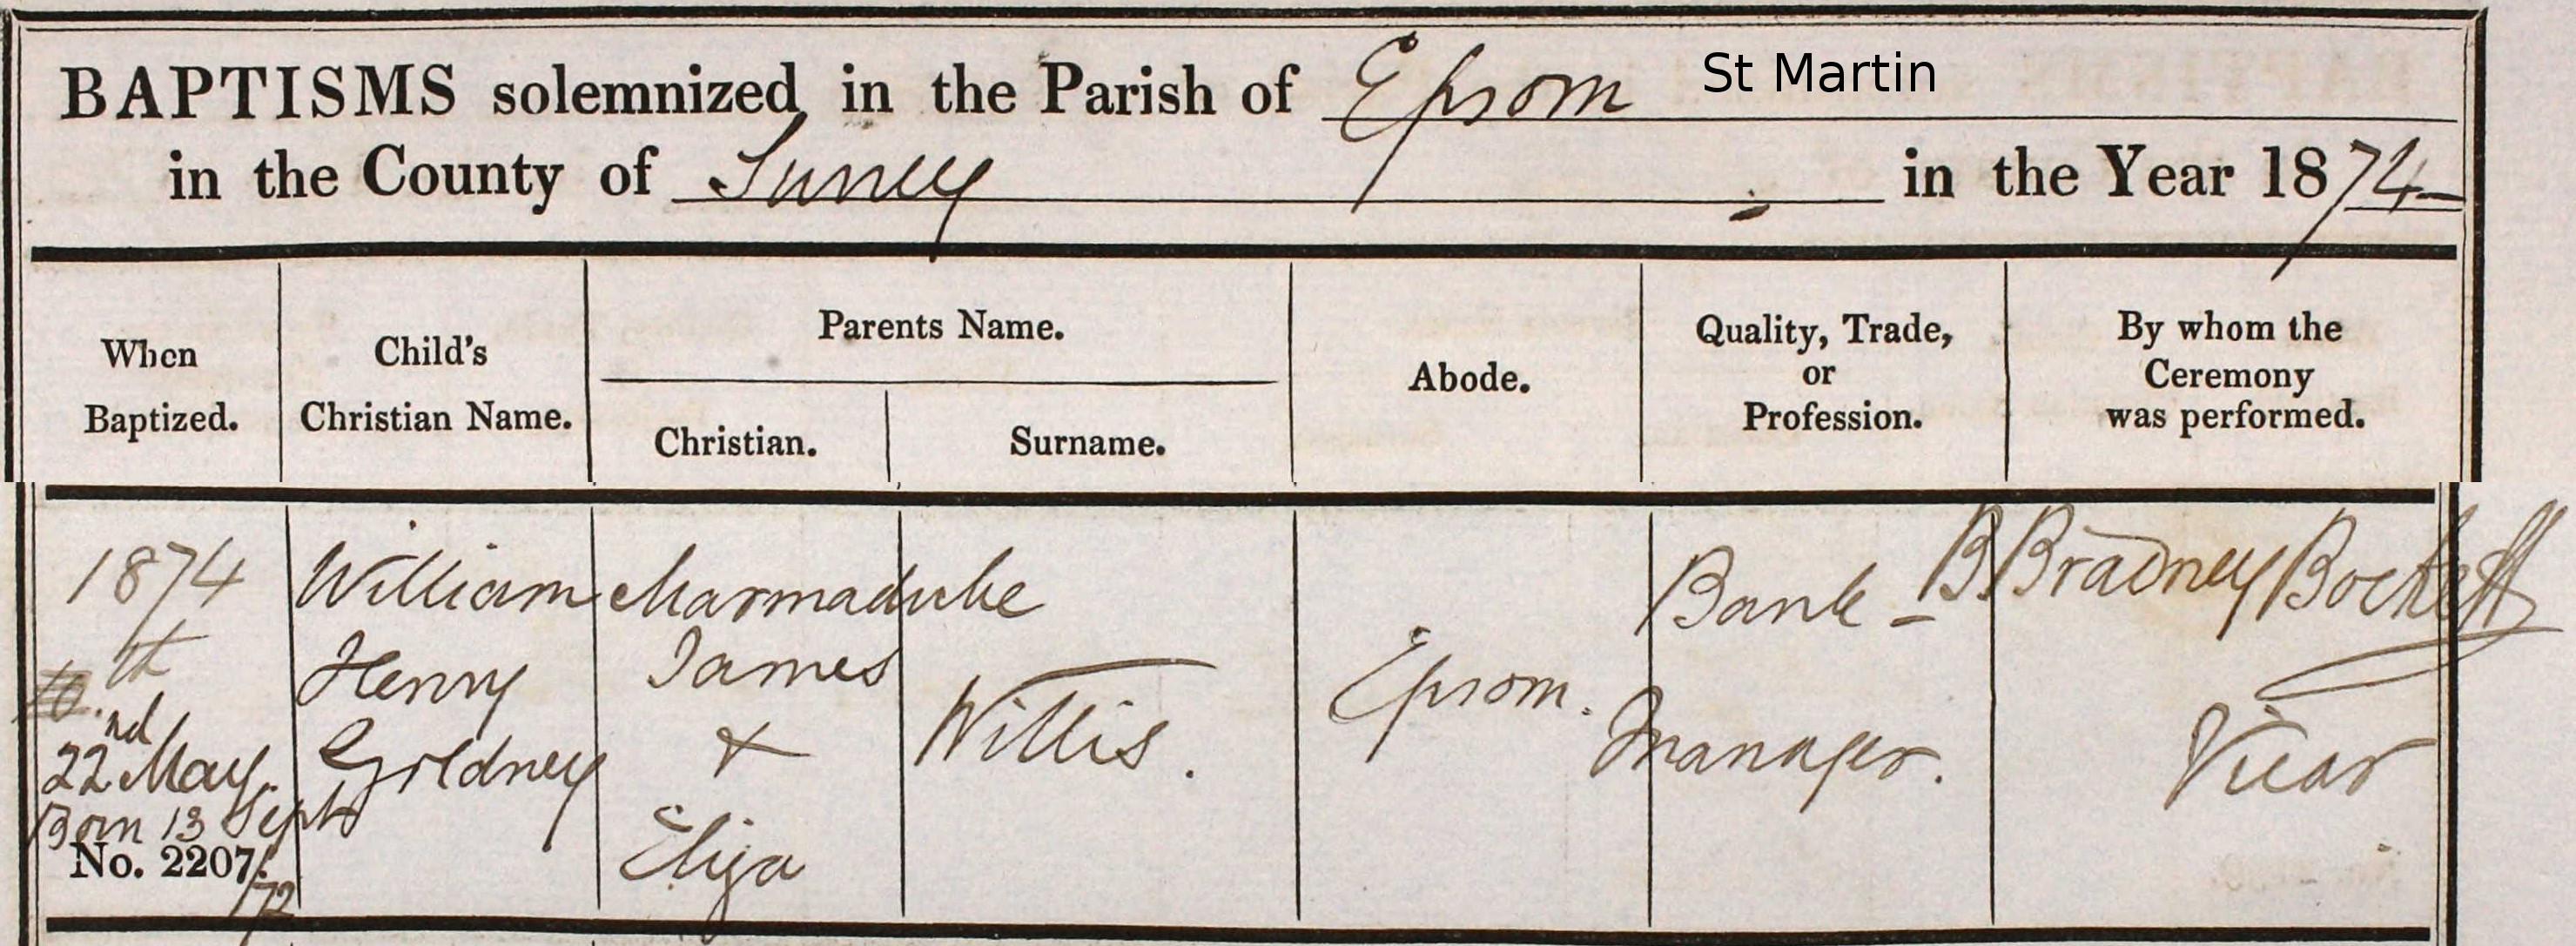 BAPTISMS solemnized in the Parish of Epsom St Martin
in the County of Surrey in the Year 1874
When Baptized.
Child's Christian Name.
Parents Name.
Christian.
Surname.
Abode.
Quality, Trade, or Profession.
By whom the Ceremony was performed.
1874
th
22nd May.
Born 13 Sept
/72
No. 2207.
William
Henry
Goldney
Marmaduke
James
&
Eliza
Willis.
Epsom.
Bank -
Manager.
B. Bradney Bockett
Vicar